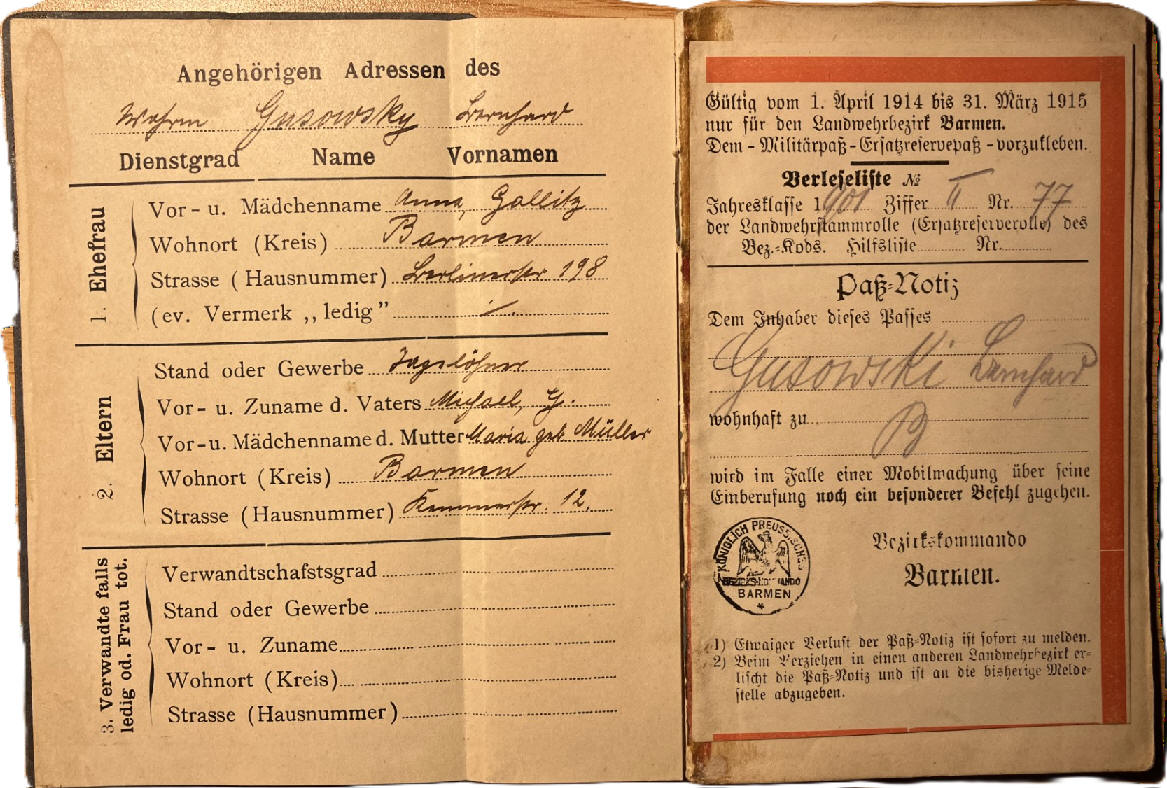 Angehörigen Adressen des
Wehrm Gusowsky Bernhard
Dienstgrad Name Vornamen
1. Ehefrau
Vor- u. Mädchenname Anna, Gollitz
Wohnort (Kreis) Barmen
Strasse (Hausnummer) Berlinerstr 198
(ev. Vermerk „ledig" ./.
2. Eltern
Stand oder Gewerbe Tagelöhner
Vor- u. Zuname d. Vaters Michael, G.
Vor- u. Mädchenname d. Mutter Maria geb Müller
Wohnort (Kreis) Barmen
Strasse (Hausnummer) 12.
3. Verwandte falls
ledig od. Frau tot.
Verwandtschafstsgrad
Stand oder Gewerbe
Vor- u. Zuname
Wohnort (Kreis)
Strasse (Hausnummer)
Gültig vom 1. April 1914 bis 31. März 1915
nur für den Landwehrbezirk Barmen.
Dem - Militärpaß - Ersatzreservepaß - vorzukleben.
Verleseliste №
Jahresklasse 1901 Ziffer II Nr. 77
der Landwehrstammrolle (Ersatzreserverolle) des
Bez.-Kods. Hilfsliste Nr.
Paß-Notiz
Dem Inhaber dieses Passes
Gusowski Bernhard
wohnhaft zu B
wird im Falle einer Mobilmachung über seine
Einberufung noch ein besonderer Befehl zugehen.
KÖNIGLICH PREUSSISCHES
BEZIRKS-KOMMANDO
BARMEN
*
Bezirkskommando
Barmen.
1) Etwaiger Verlust der Paß-Notiz ist sofort zu melden.
2) Beim Verziehen in einen anderen Landwehrbezirk er-
lischt die Paß-Notiz und ist an die bisherige Melde-
stelle abzugeben.